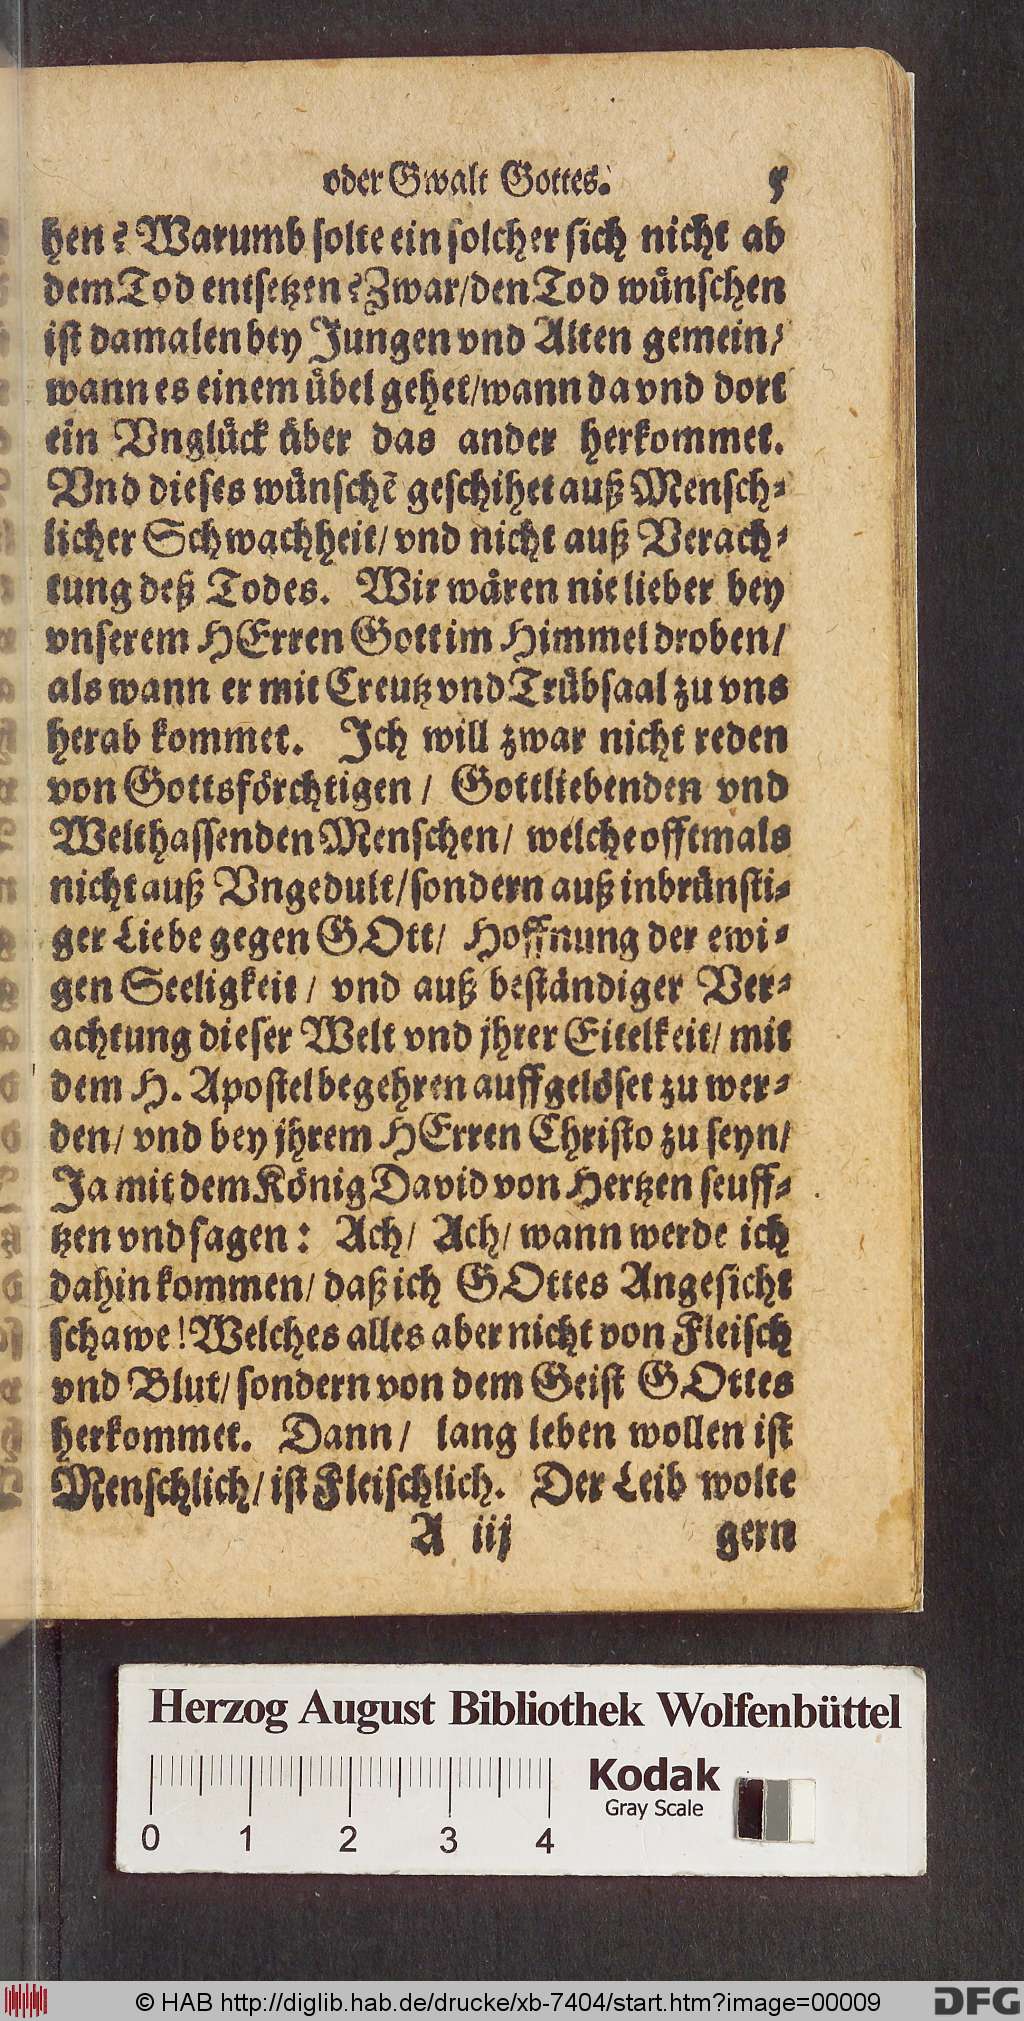 oder Gwalt Gottes. 5
hen? Warumb solte ein solcher sich nicht ab
dem Tod entsetzen? Zwar/ den Tod wuͤnschen
ist damalen bey Jungen vnd Alten gemein/
wann es einem uͤbel gehet/ wann da vnd dort
ein Vngluͤck uͤber das ander herkommet.
Vnd dieses wuͤnschẽ geschihet auß Mensch-
licher Schwachheit/ vnd nicht auß Verach-
tung deß Todes. Wir waͤren nie lieber bey
vnserem HErren Gott im Himmel droben/
als wann er mit Creutz vnd Truͤbsaal zu vns
herab kommet. Ich will zwar nicht reden
von Gottsfoͤrchtigen/ Gottliebenden vnd
Welthassenden Menschen/ welche offtmals
nicht auß Vngedult/ sondern auß inbruͤnsti-
ger Liebe gegen GOtt/ Hoffnung der ewi-
gen Seeligkeit/ vnd auß bestaͤndiger Ver-
achtung dieser Welt vnd jhrer Eitelkeit/ mit
dem H. Apostel begehren auffgeloͤset zu wer-
den/ vnd bey jhrem HErren Christo zu seyn/
Ja mit dem Koͤnig David von Hertzen seuff-
tzen vnd sagen: Ach/ Ach/ wann werde ich
dahin kommen/ daß ich GOttes Angesicht
schawe! Welches alles aber nicht von Fleisch
vnd Blut/ sondern von dem Geist GOttes
herkommet. Dann/ lang leben wollen ist
Menschlich/ ist Fleischlich. Der Leib wolte
A iij gern
Herzog August Bibliothek Wolfenbüttel
Kodak
Gray Scale
0 1 2 3 4
© HAB http://diglib.hab.de/drucke/xb-7404/start.htm?image=00009
DFG